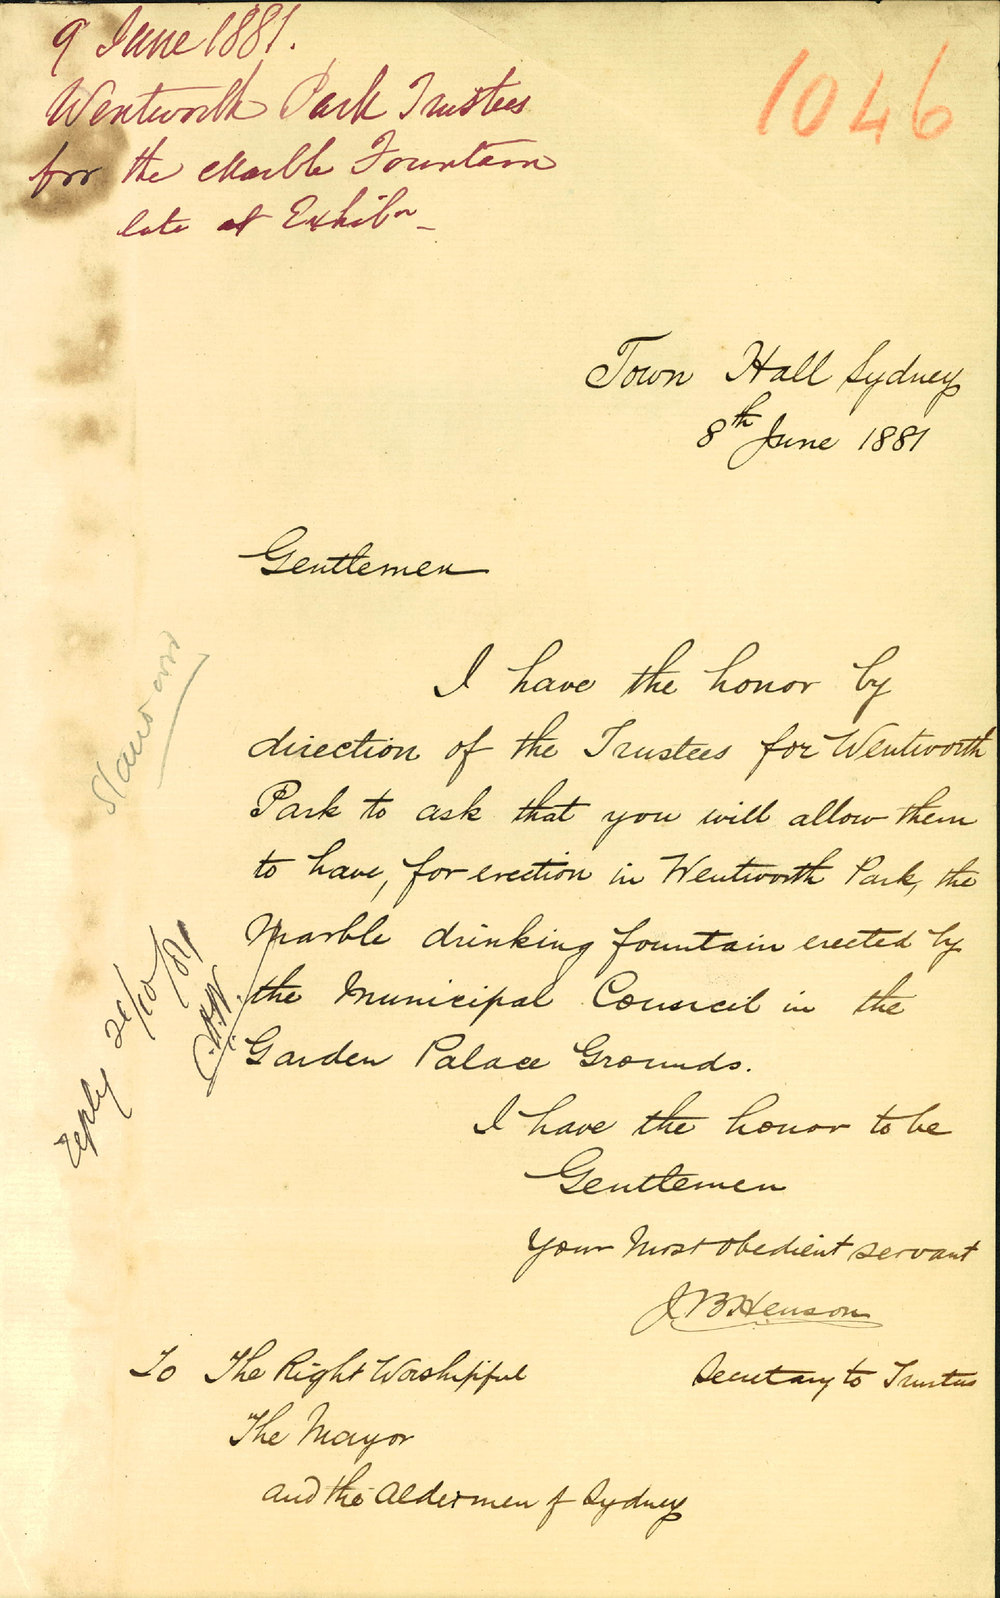 9 June 1881.
Wentworth Park Trustees
for the Marble Fountain
late at Exhibn
1046
Town Hall Sydney
8th June 1881
Gentlemen
I have the honor by
direction of the Trustees for Wentworth
Park to ask that you will allow them
to have, for erection in Wentworth Park, the
Marble drinking fountain erected by
the Municipal Council in the
Garden Palace Grounds.
I have the honor to be
Gentlemen
Your Most obedient servant
J B Henson
Secretary to Trustees
To The Right Worshipful
The Mayor
and the Aldermen of Sydney
reply /10/81